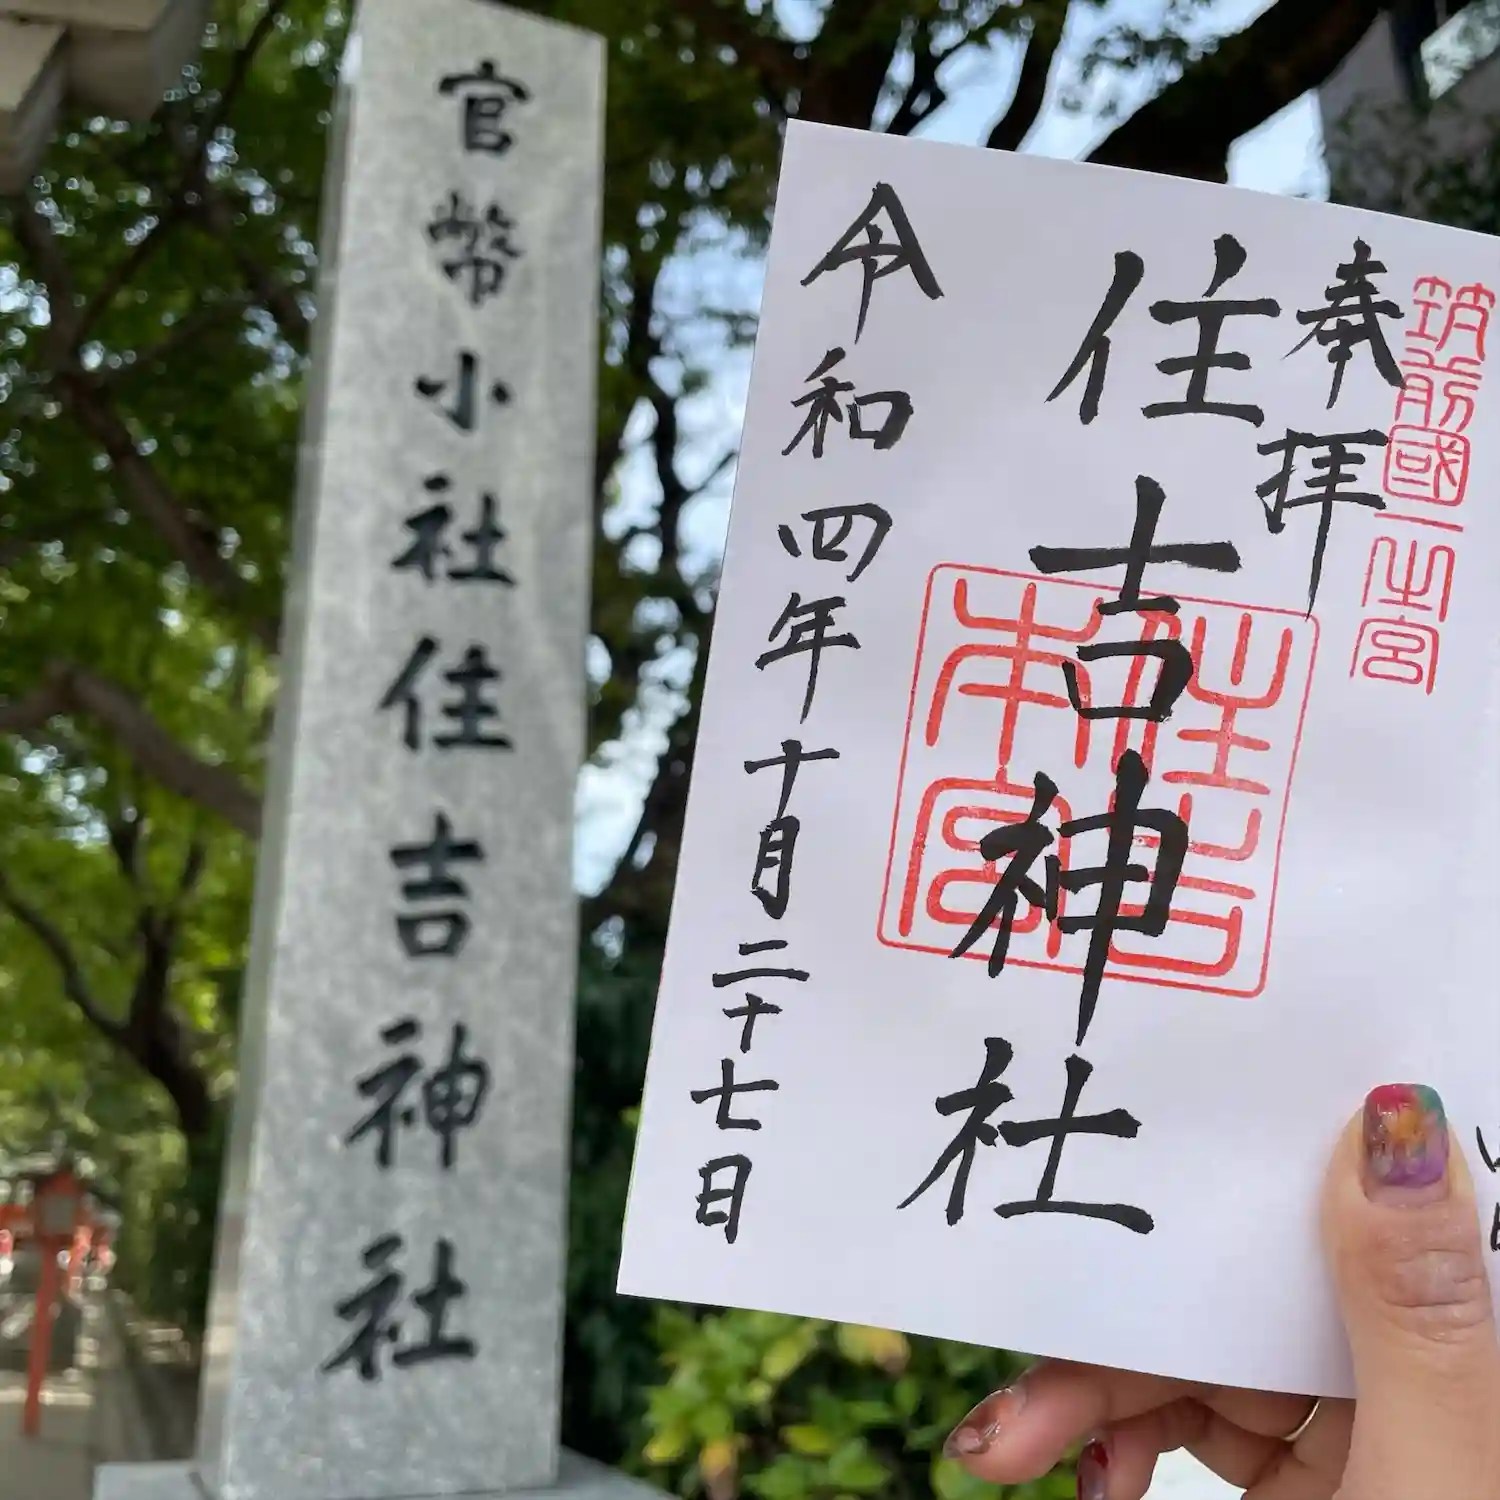 官幣小社住吉神社
筑前國一之宮
奉拝
住吉神社
住吉本宮
令和四年十月二十七日